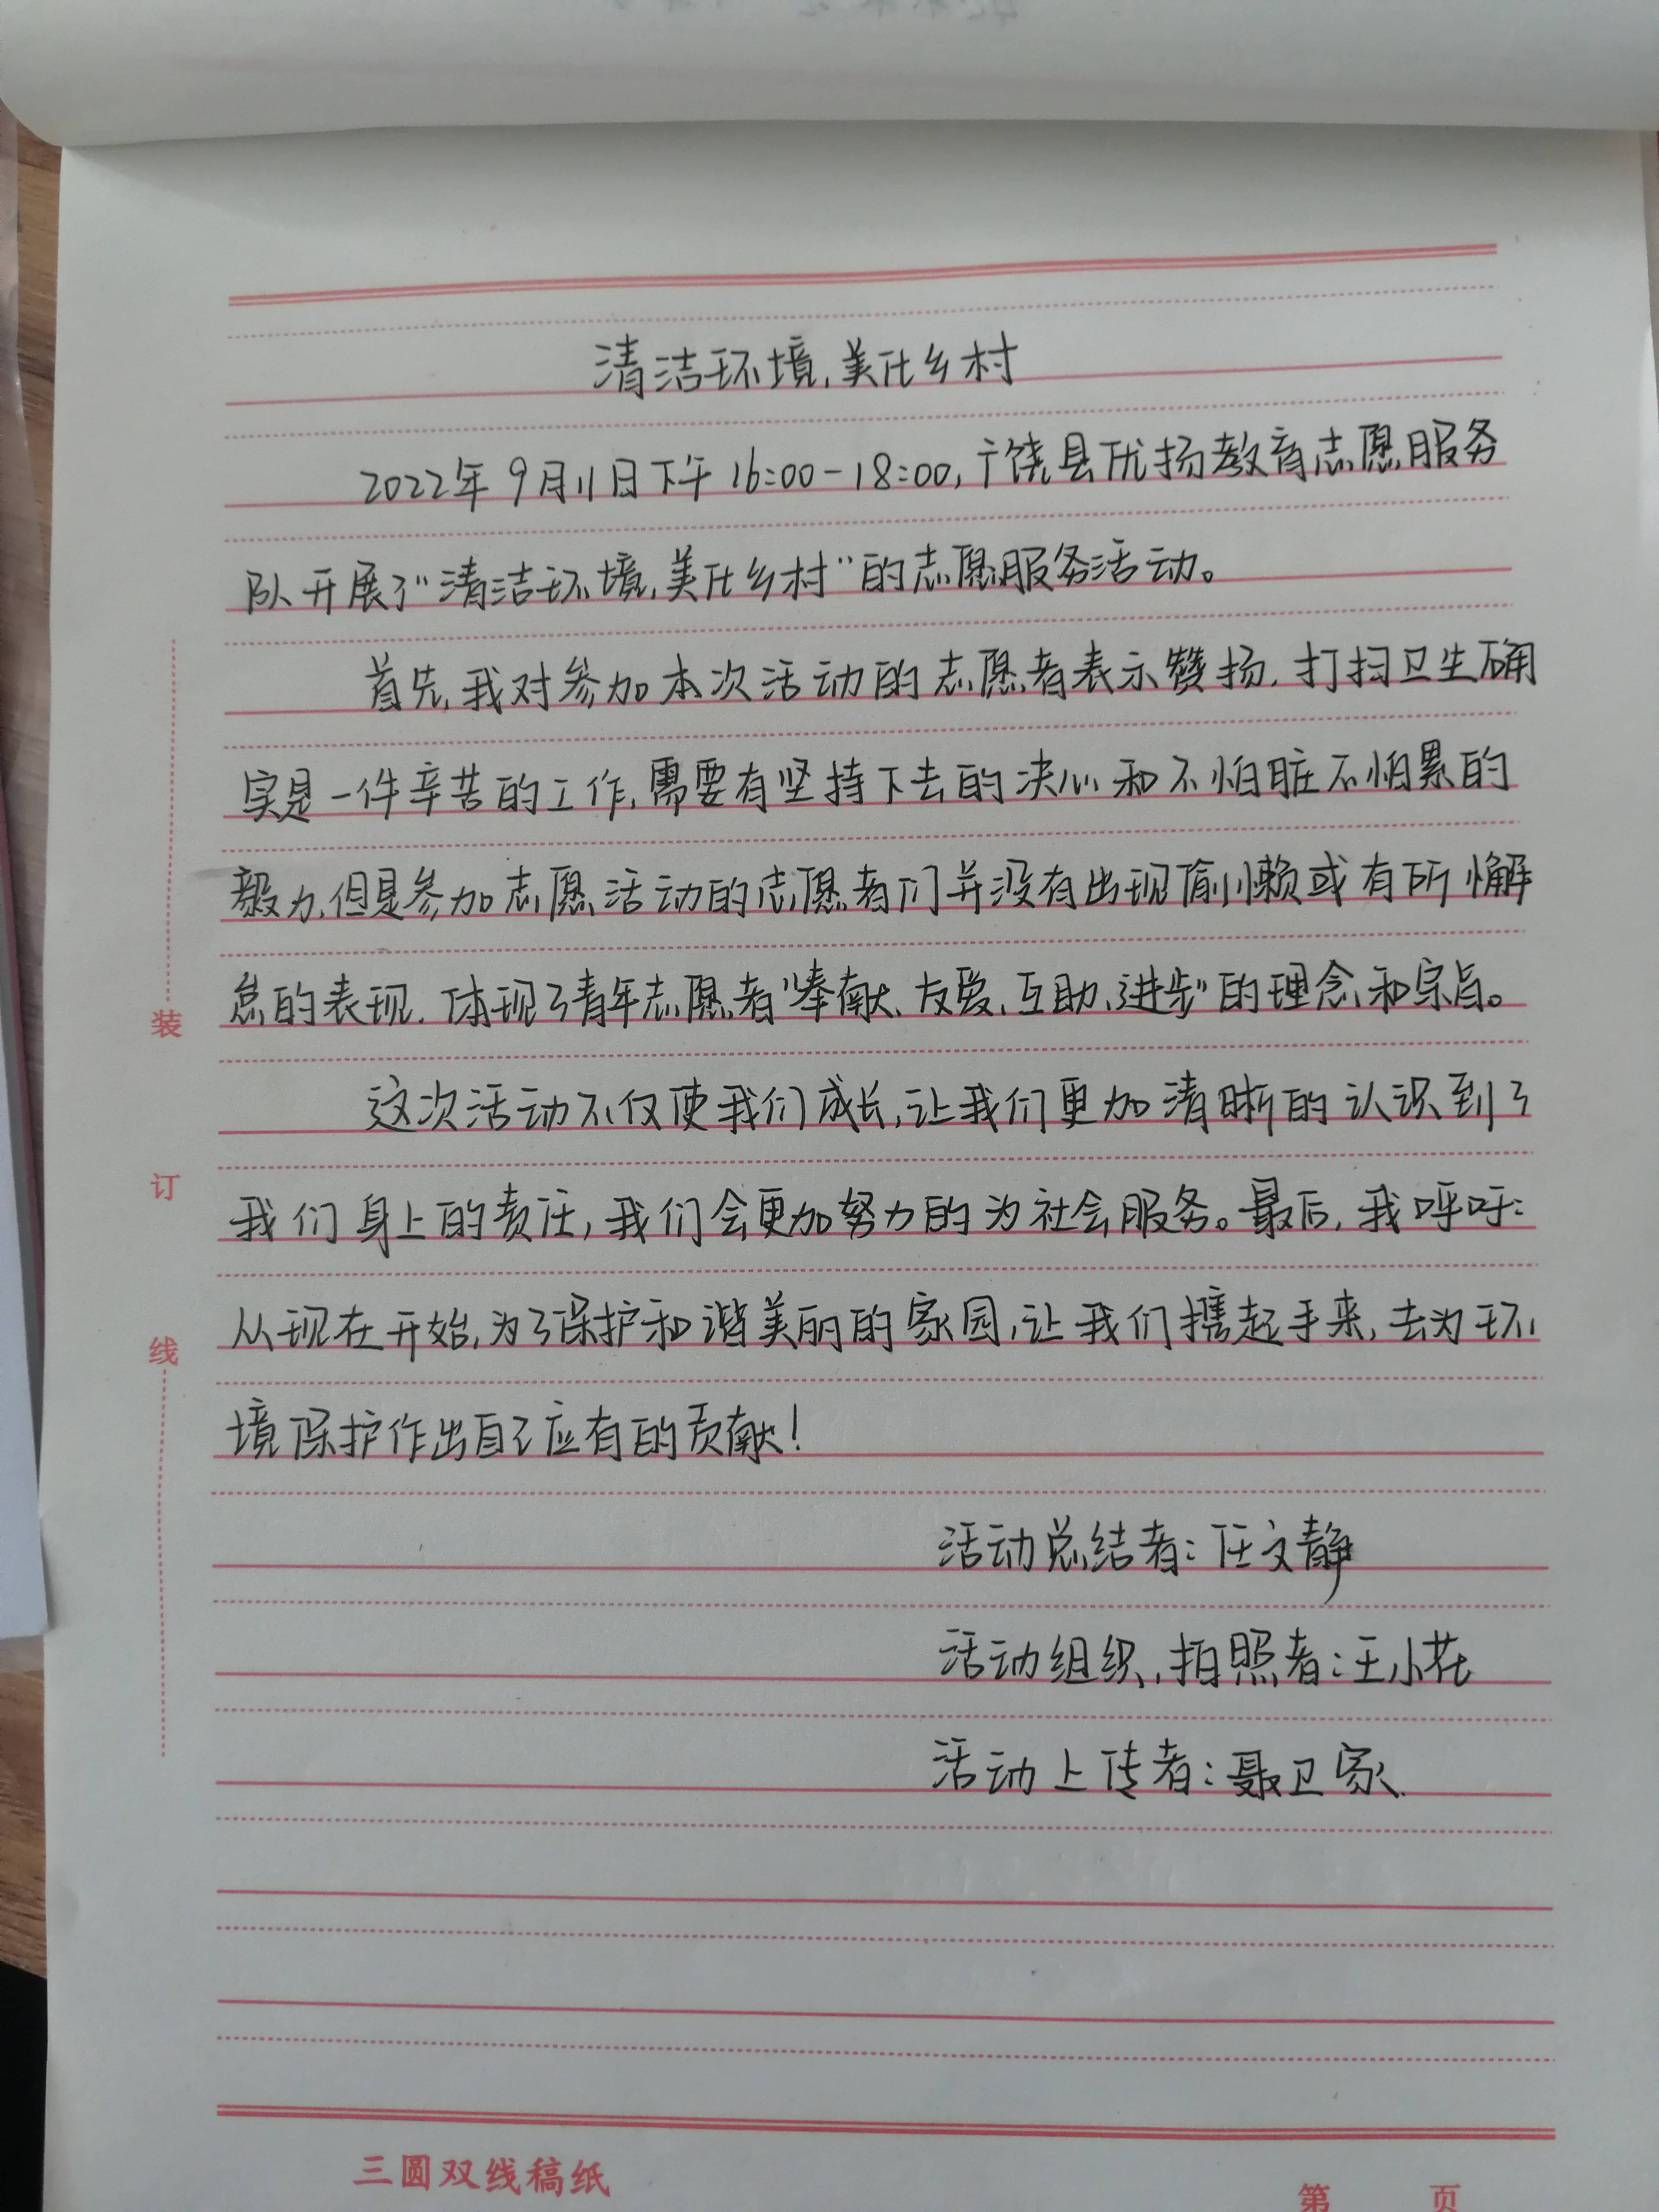 清洁环境,美化乡村
2022年9月11日下午16:00-18:00,广饶县优扬教育志愿服务
队开展了“清洁环境,美化乡村”的志愿服务活动。
首先,我对参加本次活动的志愿者表示赞扬.打扫卫生确
实是一件辛苦的工作,需要有坚持下去的决心和不怕脏不怕累的
毅力,但是参加志愿活动的志愿者们并没有出现偷懒或有所懈
怠的表现.体现了青年志愿者“奉献、友爱、互助、进步”的理念和宗旨。
这次活动不仅使我们成长,让我们更加清晰的认识到了
我们身上的责任,我们会更加努力的为社会服务。最后,我呼吁:
从现在开始,为了保护和谐美丽的家园,让我们携起手来,去为环
境保护作出自己应有的贡献!
活动总结者:任文静
活动组织,拍照者:王小花
活动上传者:聂卫家
装
订
线
三圆双线稿纸
第 页